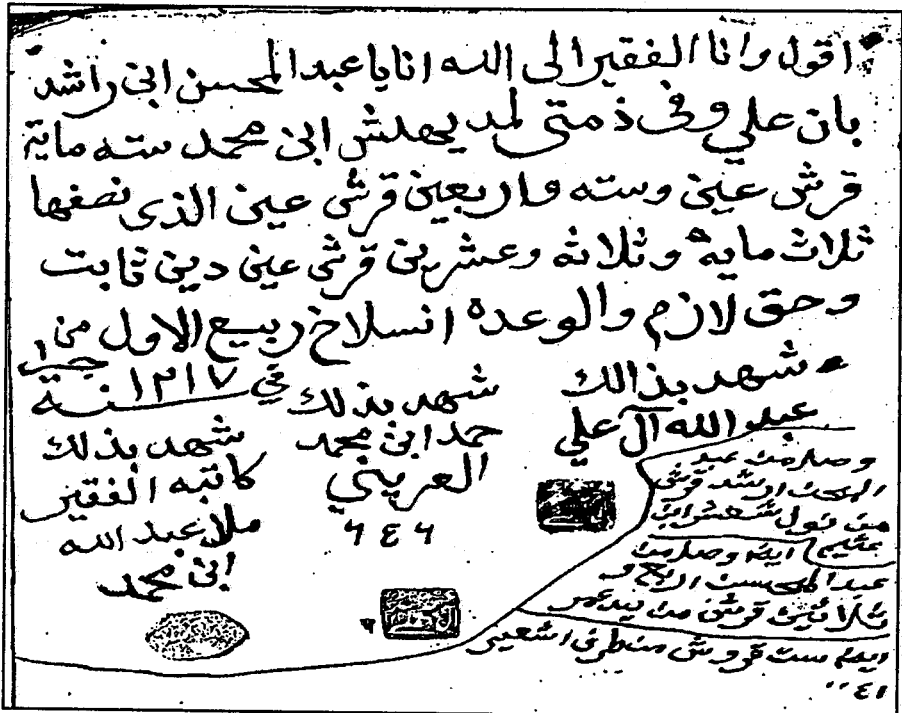 اقول وانا الفقير الى الله انايا عبد المحسن ابن راشد
بان علي وفي ذمتي لمديهلش ابن محمد سته ماية
قرش عين وسته واربعين قرش عين الذى نصفها
ثلاث ماية وثلاثه وعشرين قرش عين دين ثابت
وحق لازم والوعده انسلاخ ربيع الاول من
في ١٢١٧ سنة
شهد بذالك
عبد الله آل علي
شهد بذلك
حمد ابن محمد
العريني
٦٤٦
شهد بذلك
كاتبه الفقير
ملا عبد الله
ابن محمد
وصل من عبد
قرش
من
ايضا وصل من
عبد المحسن اربع و
ثلاثين قرش من يد عمر
ايضا ست قروش من اشعير
٤١